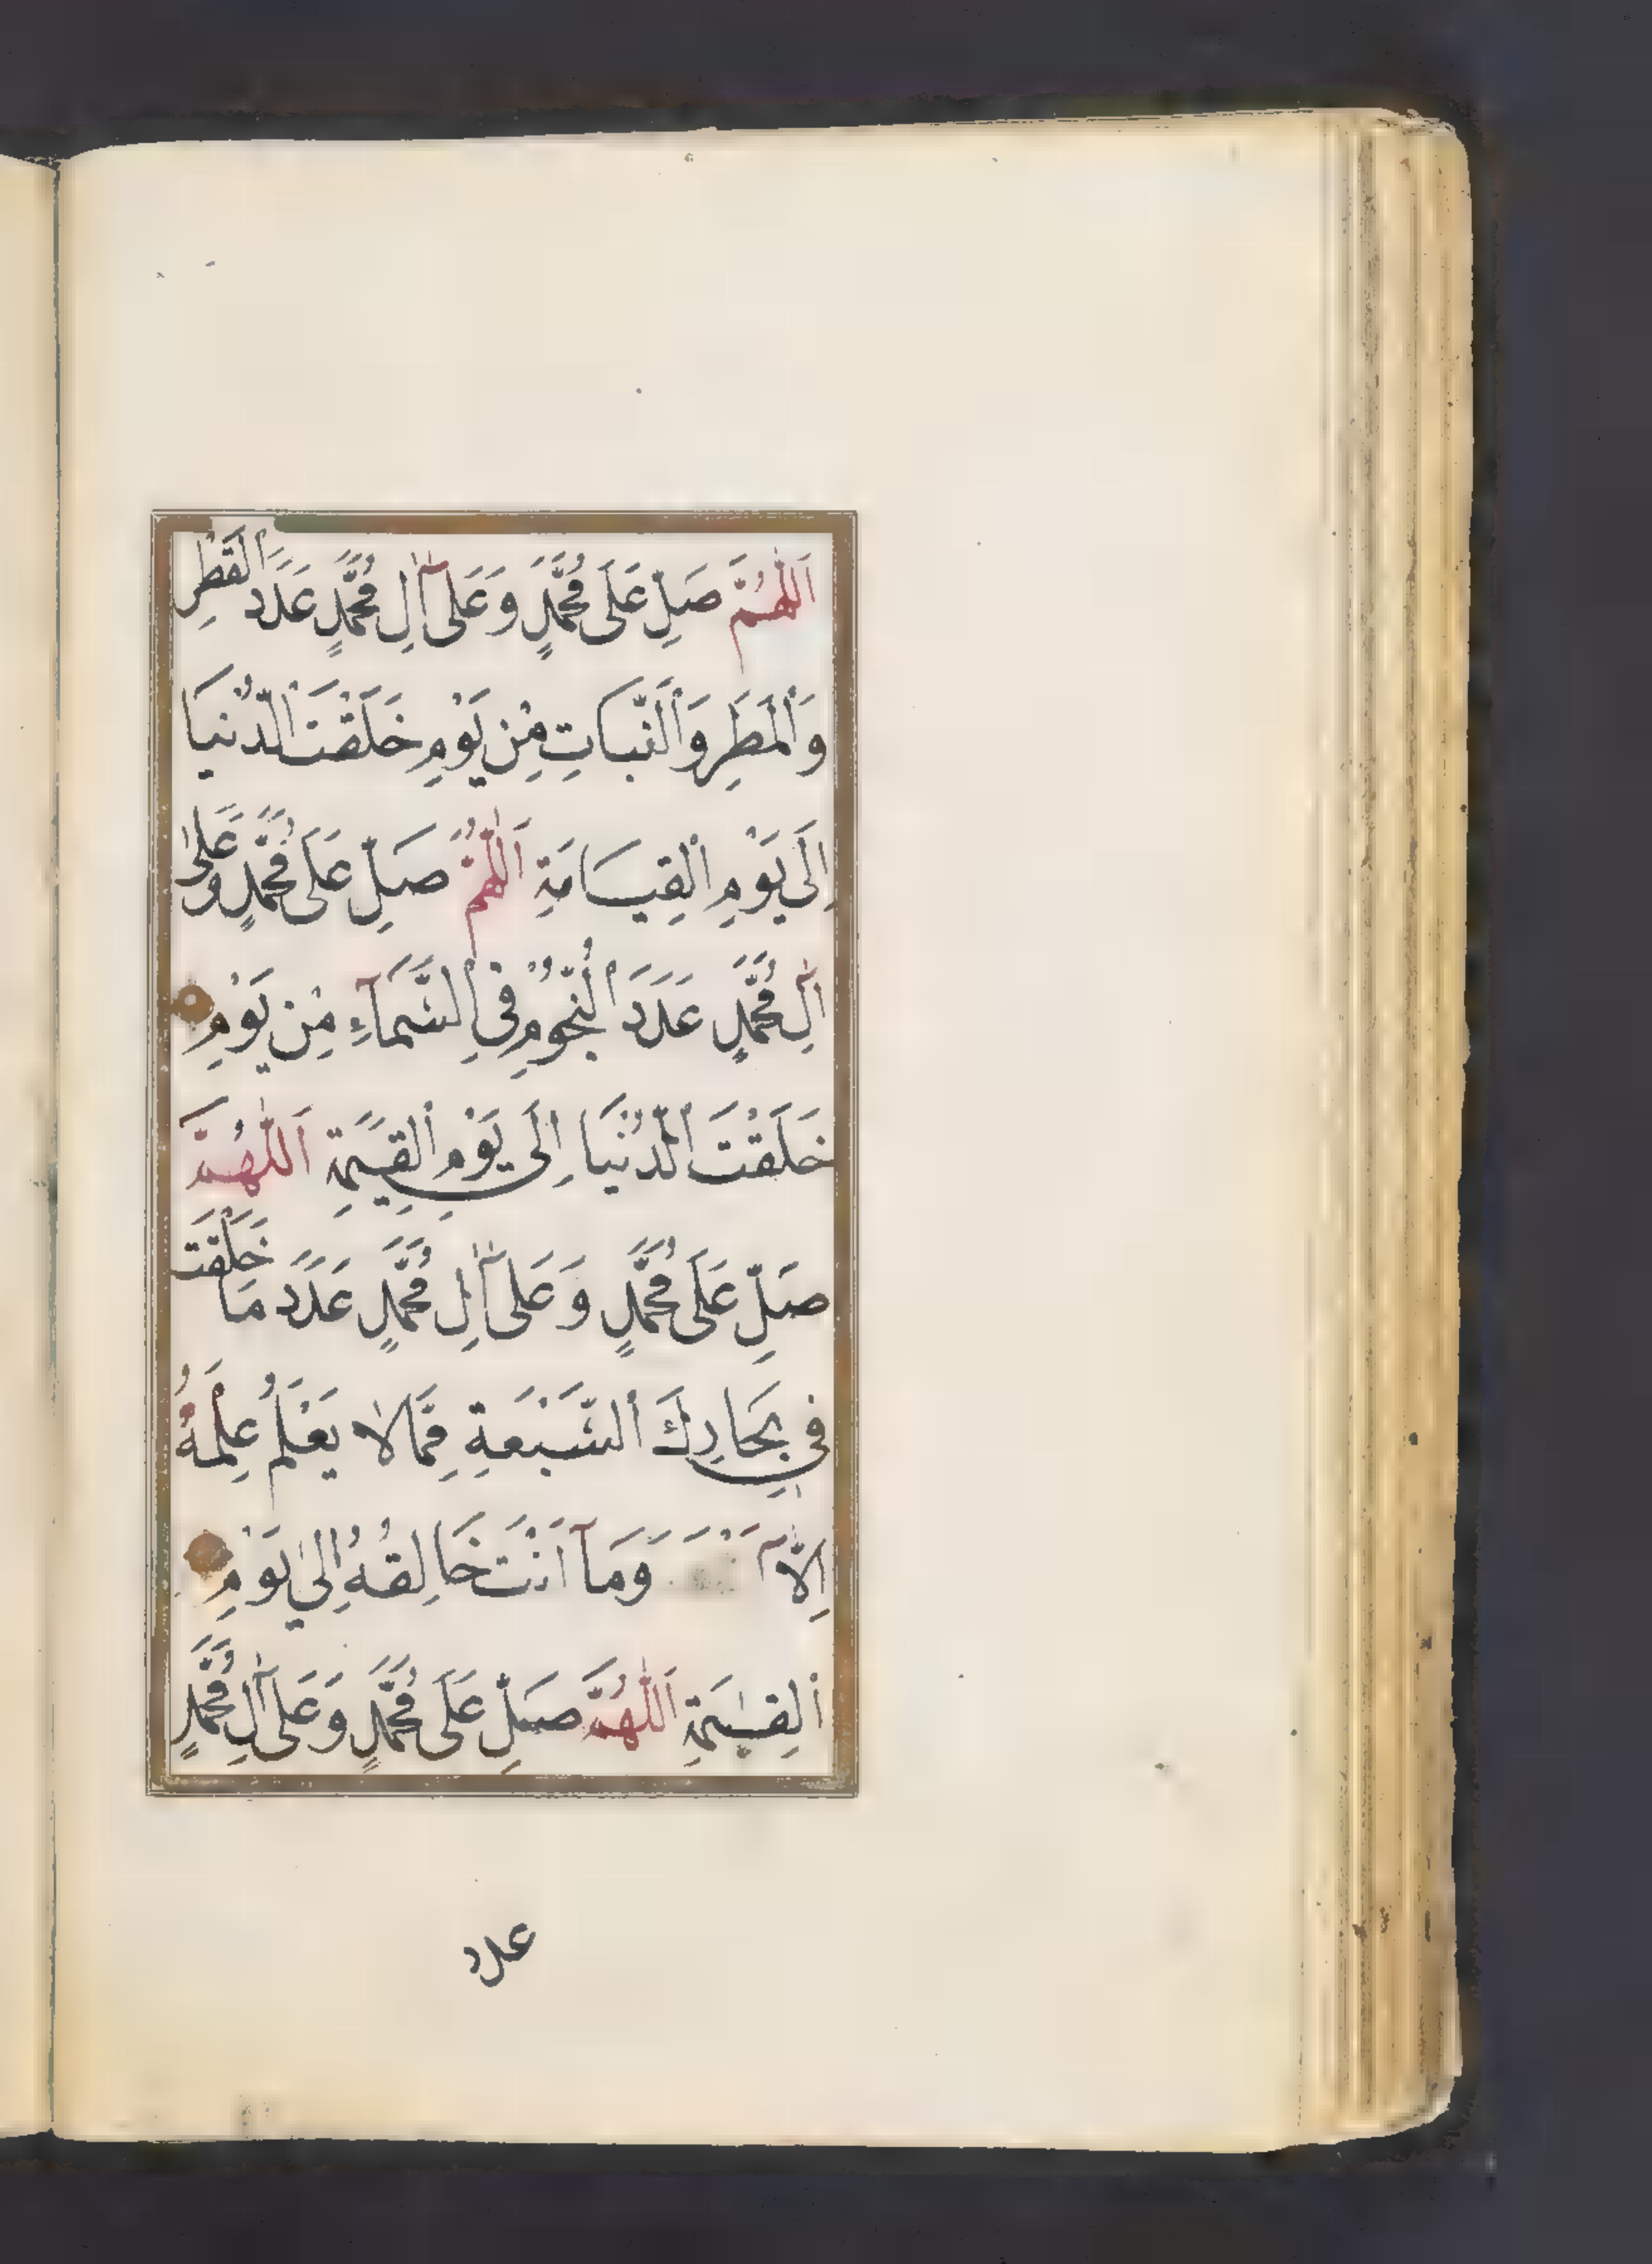 اَللّٰهُمَّ صَلِّ عَلَى مُحَمَّدٍ وَعَلَىٰ آلِ مُحَمَّدٍ عَدَدَ الْقَطْرِ
وَالْمَطَرِ وَالنَّبَاتِ مِنْ يَوْمِ خَلَقْتَ الدُّنْيَا
اِلَى يَوْمِ الْقِيَامَةِ اَللّٰهُمَّ صَلِّ عَلَى مُحَمَّدٍ وَعَلٰى
اٰلِ مُحَمَّدٍ عَدَدَ النُّجُومِ فِي السَّمَآءِ مِنْ يَوْمِ
خَلَقْتَ الدُّنْيَا اِلَى يَوْمِ الْقِيٰمَةِ اَللّٰهُمَّ
صَلِّ عَلَى مُحَمَّدٍ وَعَلَىٰ آلِ مُحَمَّدٍ عَدَدَ مَا خَلَقْتَ
فِي بِحَارِكَ السَّبْعَةِ مِمَّا لَا يَعْلَمُ عِلْمَهُ
اِلَّا وَمَآ اَنْتَ خَالِقُهُ اِلٰى يَوْمِ
الْقِيٰمَةِ اَللّٰهُمَّ صَلِّ عَلَى مُحَمَّدٍ وَعَلَى اٰلِ مُحَمَّدٍ
عدد